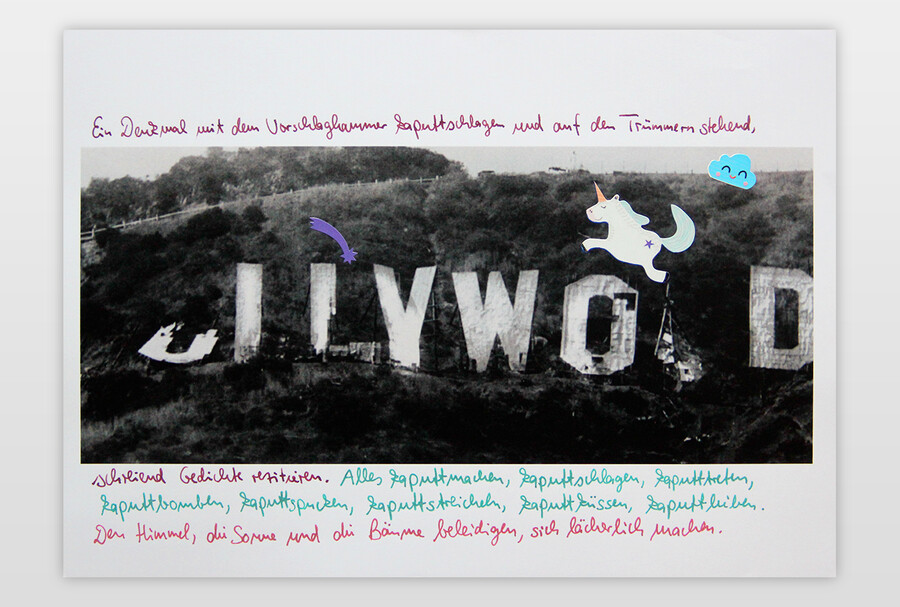 Ein Denkmal mit dem Vorschlaghammer kaputtschlagen und auf den Trümmern stehend,
LLYWO D
schreiend Gedichte rezitieren. Alles kaputtmachen, kaputtschlagen, kaputttreten,
kaputtbomben, kaputtspucken, kaputtstreicheln, kaputtküssen, kaputtlieben.
Den Himmel, die Sonne und die Bäume beleidigen, sich lächerlich machen.